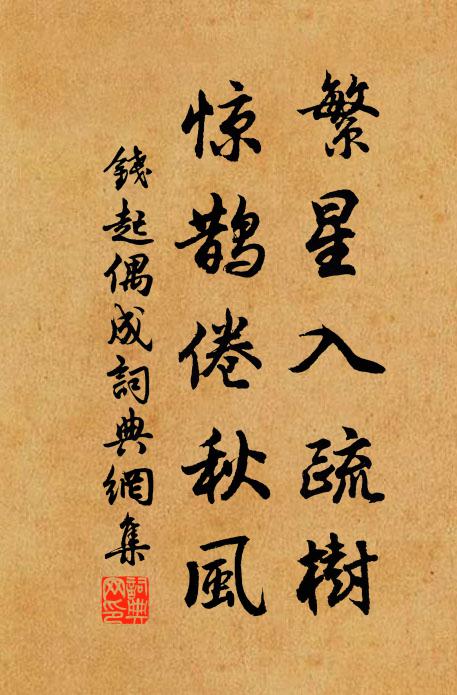 繁星入疏樹
惊鵲倦秋風
錢起偶成詞典網集
詞典網印